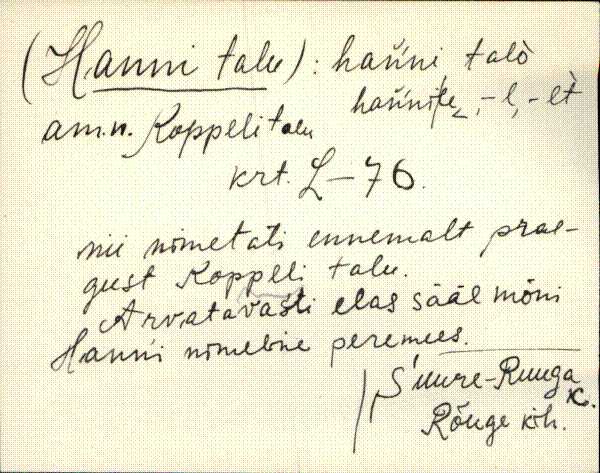 (Hanni talu): hańńi, talò
hańńile, -l, -lt
am.n. Koppeli talu
krt. L-76.
nii nimetati ennemalt prae-
gust Koppeli talu.
Arvatavasti elas sääl mõni
Hanni nimeline peremees.
Suure-Ruuga k.
Rõuge kih.